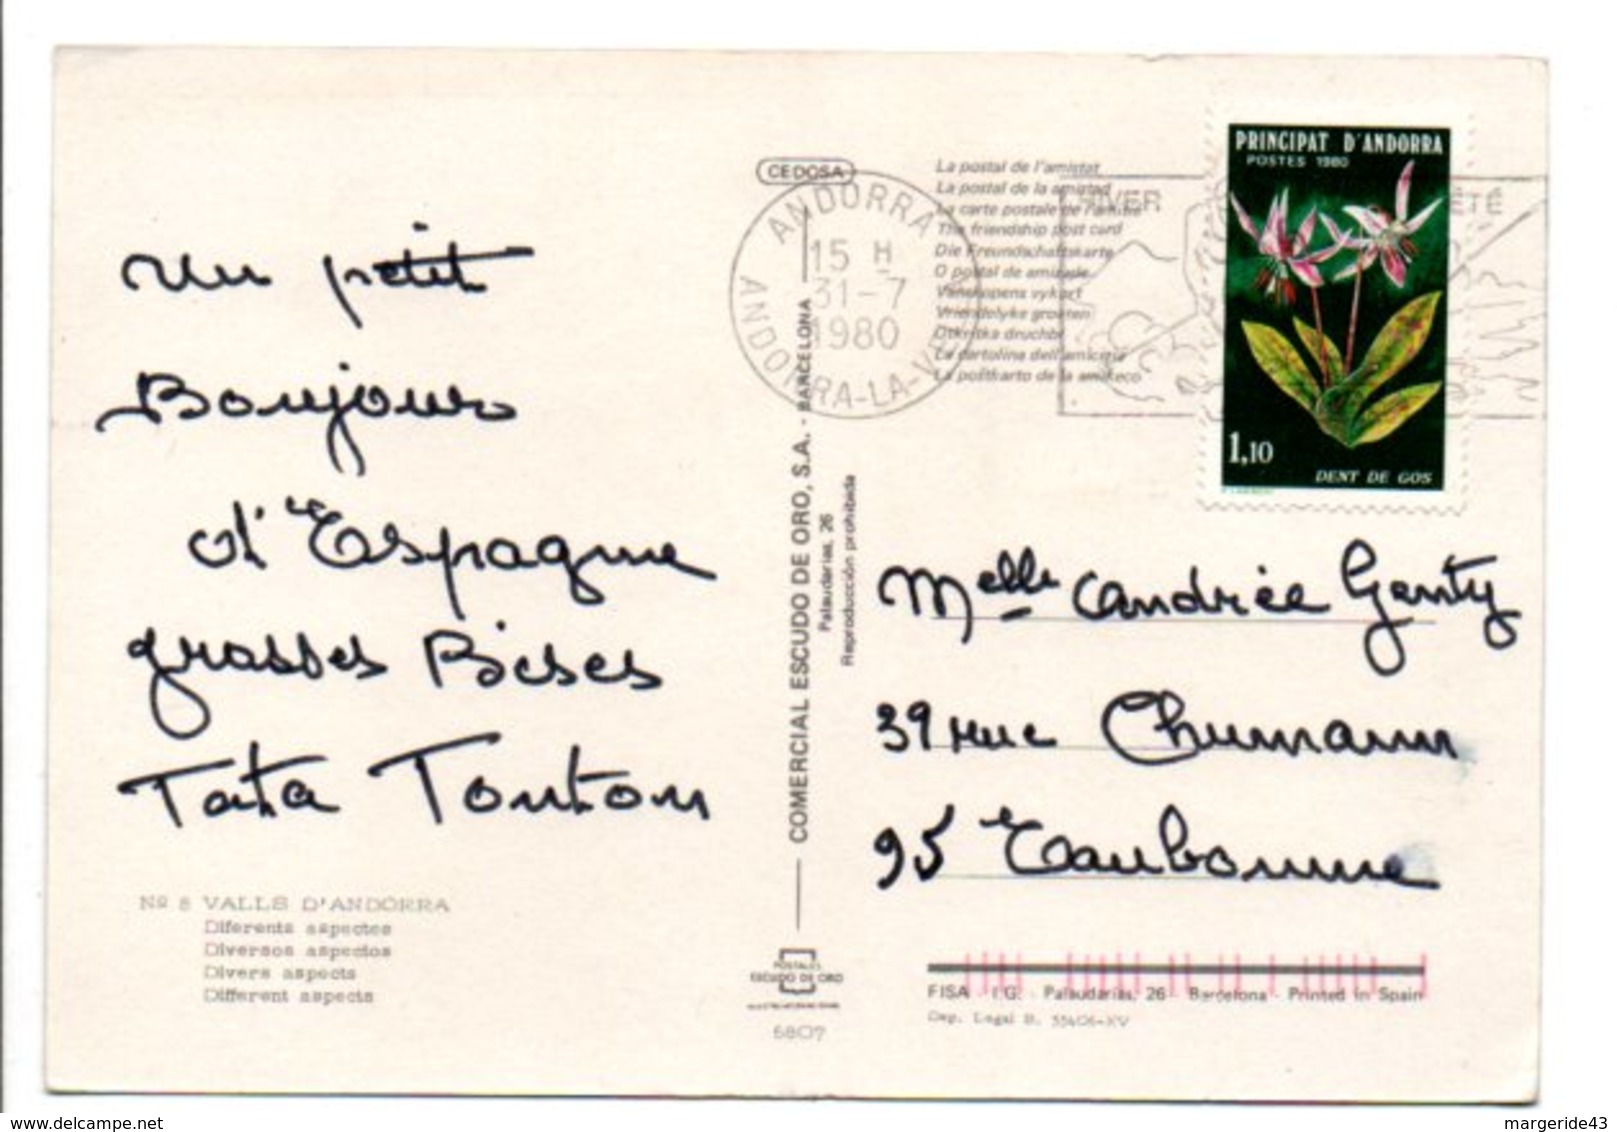 PRINCIPAT D'ANDORRA
POSTES 1980
1,10
DENT DE GOS
CEDOSA
La postal de l'amistat
La postal de la amistad
La carte postale de l'amitié
The friendship post card
Die Freundschaftskarte
O postal de amizade
Vanskapens vykort
Vriendelyke groeten
Otkritka druchbi
La cartolina dell'amicizia
La poŝtkarto de la amikeco
ANDORRA
15 H
31-7
1980
ANDORRA-LA-V
HIVER
ETE
Un petit
Bonjour
d'Espagne
grosses Bises
Tata Tonton
COMERCIAL ESCUDO DE ORO, S.A. - BARCELONA
Palaudarias, 26
Reproducción prohibida
Melle Andrée Genty
39 rue Chumann
95 Eaubonne
Nº 8 VALLS D'ANDORRA
Diferents aspectes
Diversos aspectos
Divers aspects
Different aspects
POSTALES
ESCUDO DE ORO
6807
FISA - I.G. - Palaudarias, 26 - Barcelona - Printed in Spain
Dep. Legal B. 33406-XV
margeride43